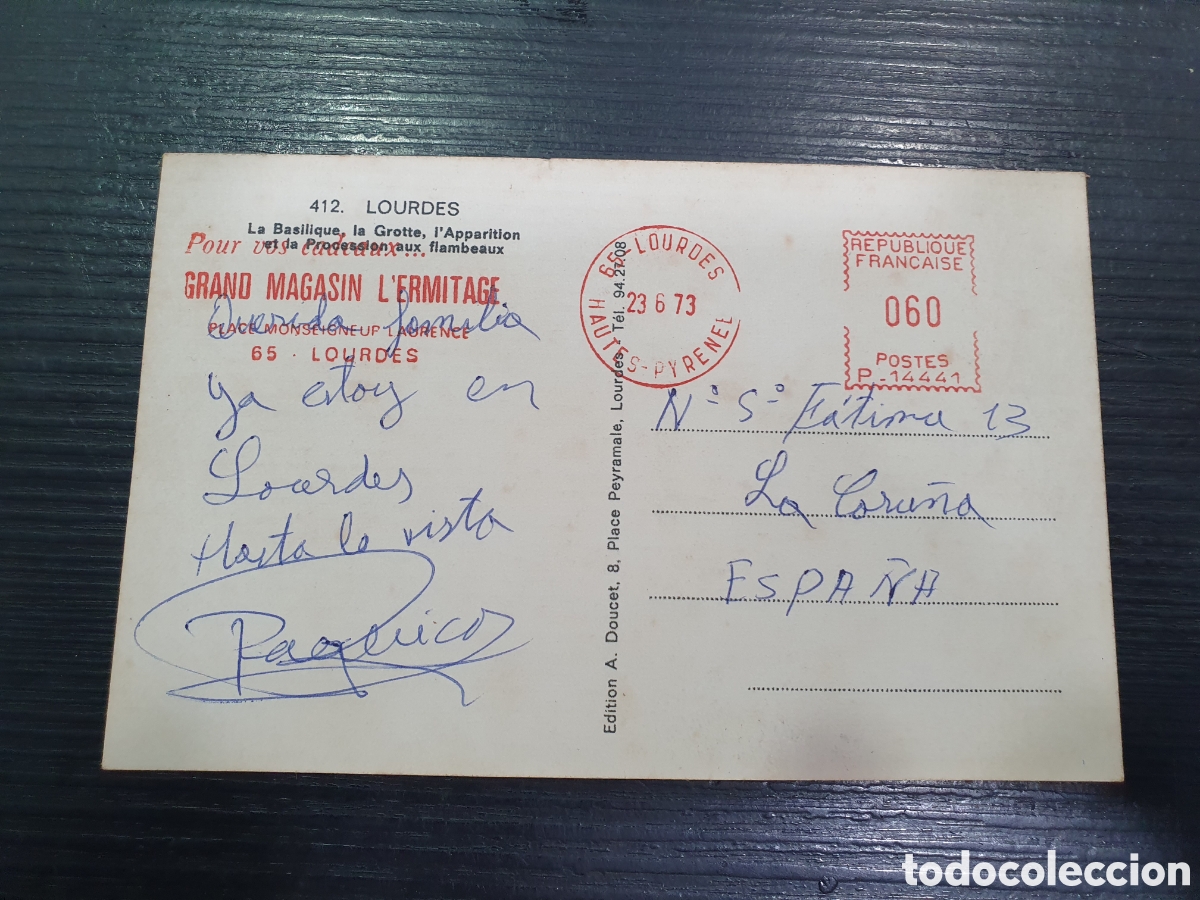 412. LOURDES
La Basilique, la Grotte, l'Apparition
et la Procession aux flambeaux
Pour vos cadeaux...
GRAND MAGASIN L'ERMITAGE
PLACE MONSEIGNEUR LAURENCE
65 . LOURDES
Querida familia
ya estoy en
Lourdes
Hasta la vista
Paquicos
Edition A. Doucet, 8, Place Peyramale, Lourdes - Tél. 94.27.08
65 - LOURDES
23 6 73
HAUTES-PYRENEES
REPUBLIQUE
FRANCAISE
060
POSTES
P.-14441
Nª Sª Fátima 13
La Coruña
ESPAÑA
todocoleccion